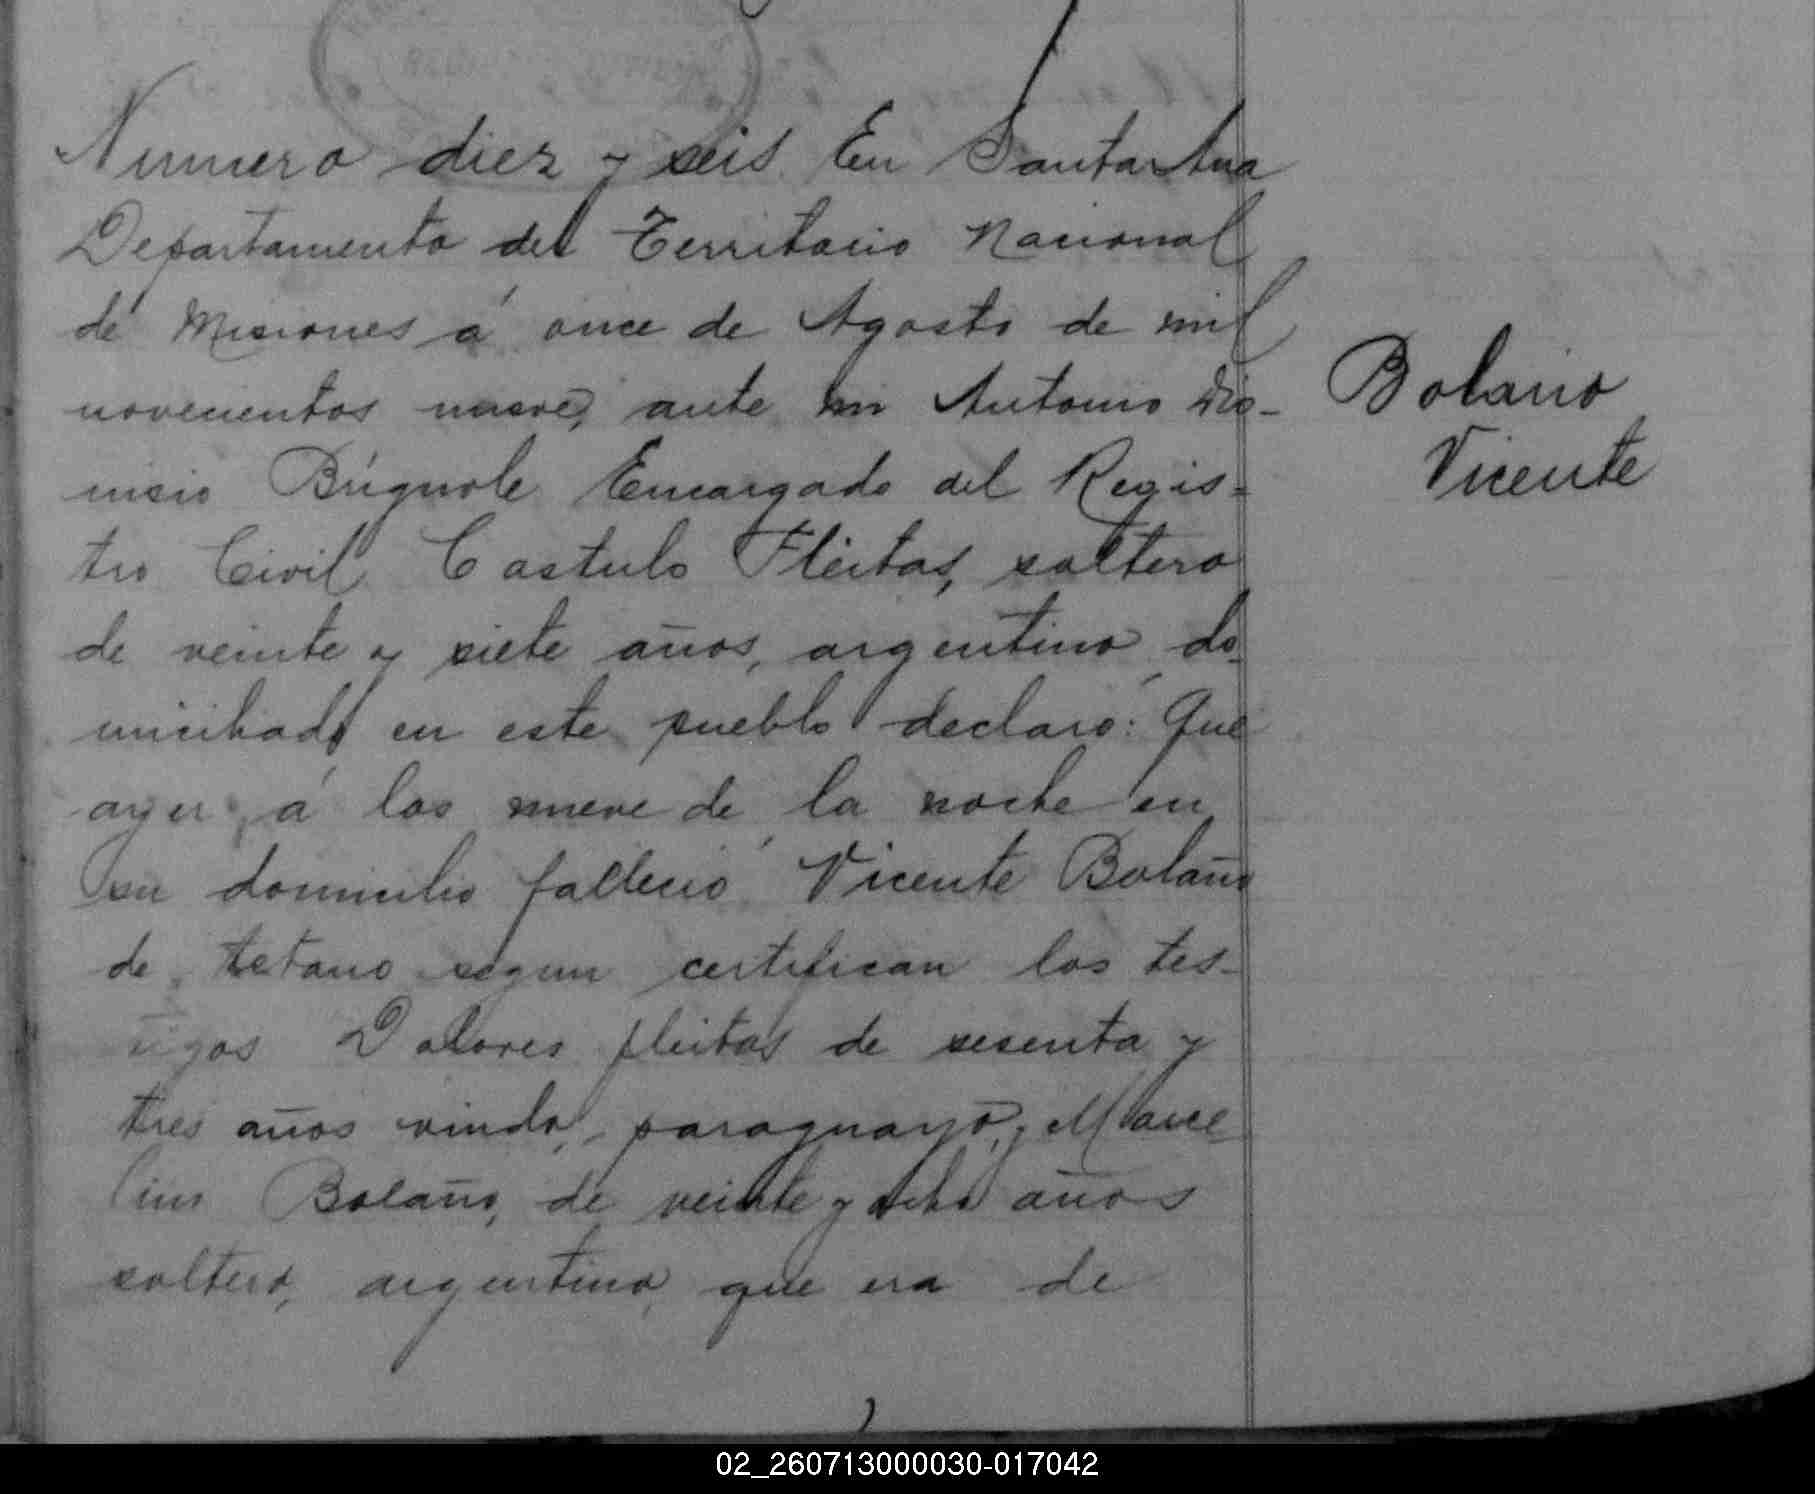 Numero diez y seis. En Santa Ana
Departamento del Territorio Nacional
de Misiones á once de Agosto de mil
novecientos nueve, ante mi Antonio Dio-
nisio Brignole Encargado del Regis-
tro Civil Castulo Fleitas, soltero
de veinte y siete años, argentino, do-
miciliado en este pueblo declaró: Que
ayer á las nueve de la noche en
su domicilio falleció Vicente Bolaño
de tetano segun certifican los tes-
tigos Dolores fleitas de sesenta y
tres años viudo, paraguayo, y Marce
lino Bolaño, de veinte y ocho años
soltero, argentino, que era de
Bolaño
Vicente
02_260713000030-017042